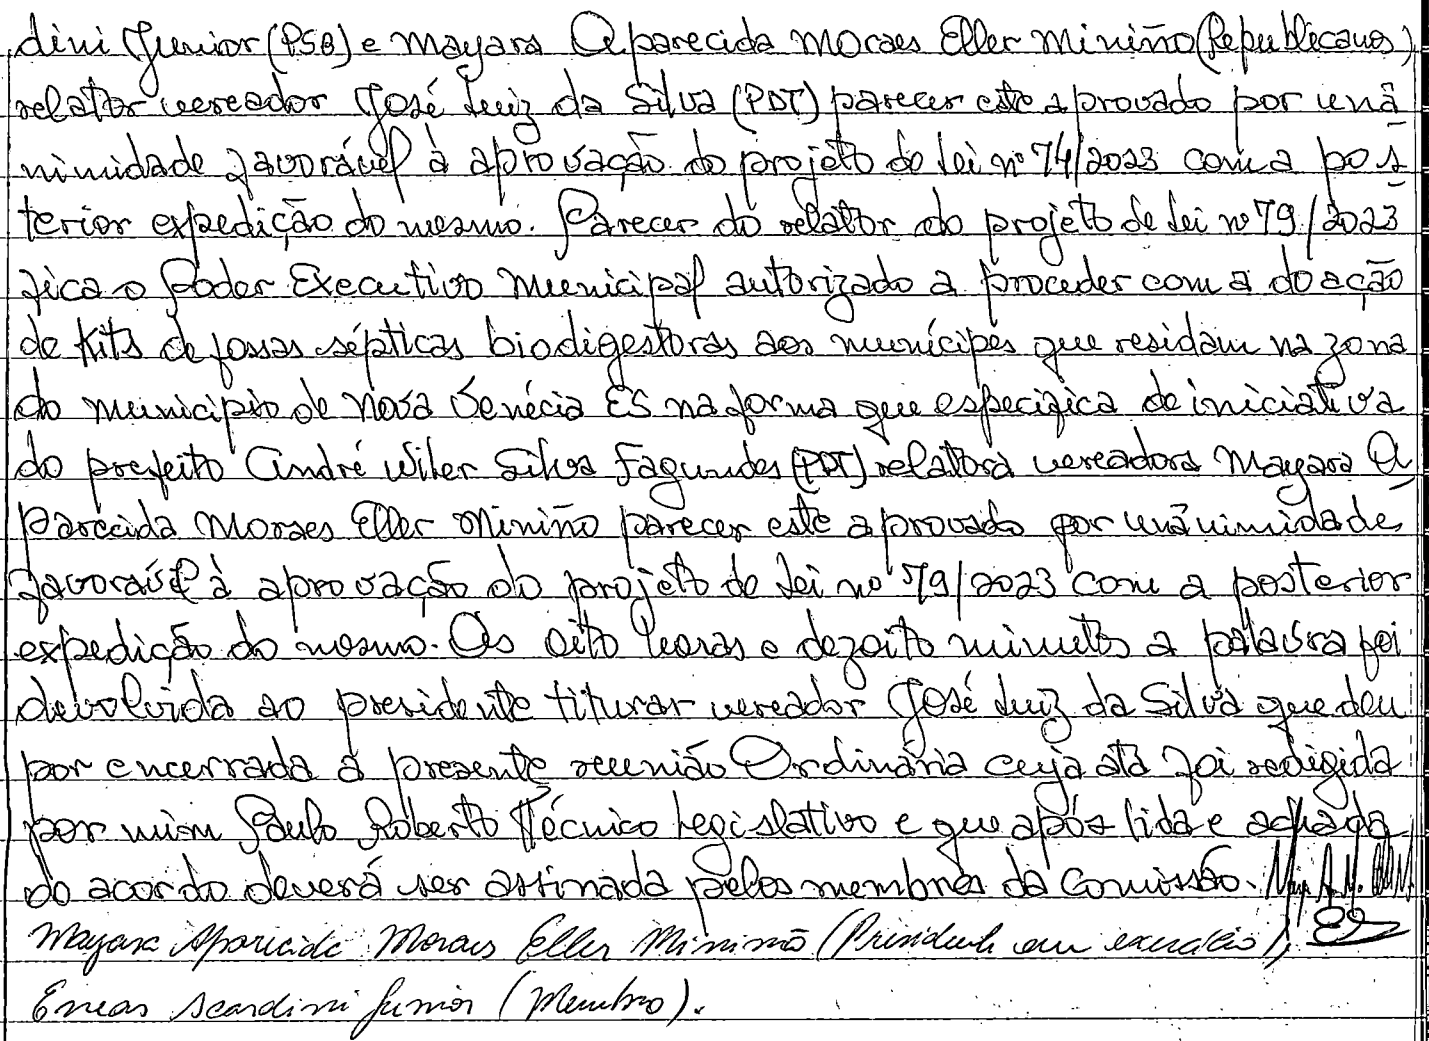 dini Junior (PSB) e Mayara Aparecida Moraes Eller Miniño (Republicanos)
relator vereador José Luiz da Silva (PDT) parecer este aprovado por unâ
nimidade favorável à aprovação do projeto de Lei nº 74/2023 com a pos
terior expedição do mesmo. Parecer do relator do projeto de Lei nº 79/2023
fica o Poder Executivo Municipal autorizado a proceder com a doação
de kits de fossas sépticas biodigestoras aos munícipes que residam na zona
do município de Nova Venécia ES na forma que especifica de iniciativa
do prefeito André Wiler Silva Fagundes (PDT) relatora vereadora Mayara A
parecida Moraes Eller Miniño parecer este aprovado por unânimidade
favorável à aprovação do projeto de Lei nº 79/2023 com a posterior
expedição do mesmo. As oito horas e dezoito minutos a palavra foi
devolvida ao presidente titurar vereador José Luiz da Silva que deu
por encerrada a presente reunião Ordinária cuja ata foi redigida
por mim Paulo Roberto Técnico Legislativo e que após lida e achada
do acordo deverá ser assinada pelos membros da Comissão.
Mayara Aparecida Moraes Eller Miniño (Presidente em exercício),
Eneas Scardini Junior (Membro).